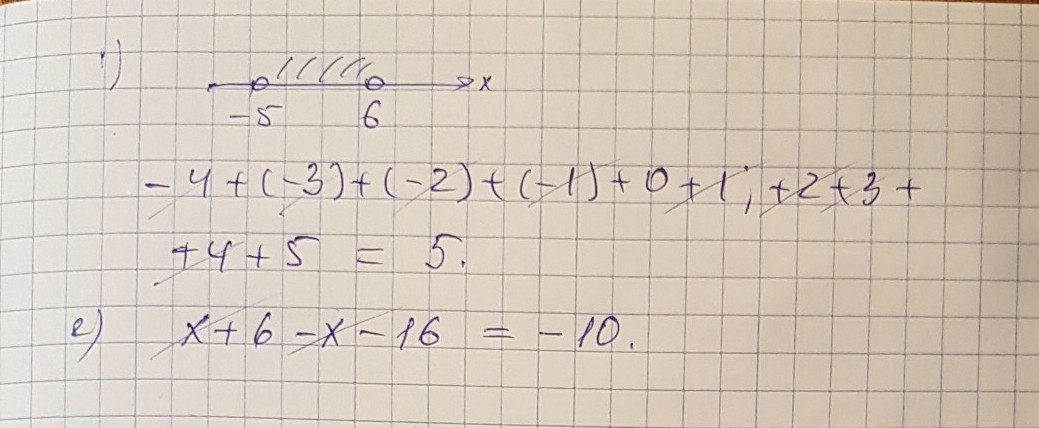 1)
x
-5 6
-4+(-3)+(-2)+(-1)+0+1;+2+3+
+4+5 = 5.
2) x+6-x-16 = -10.